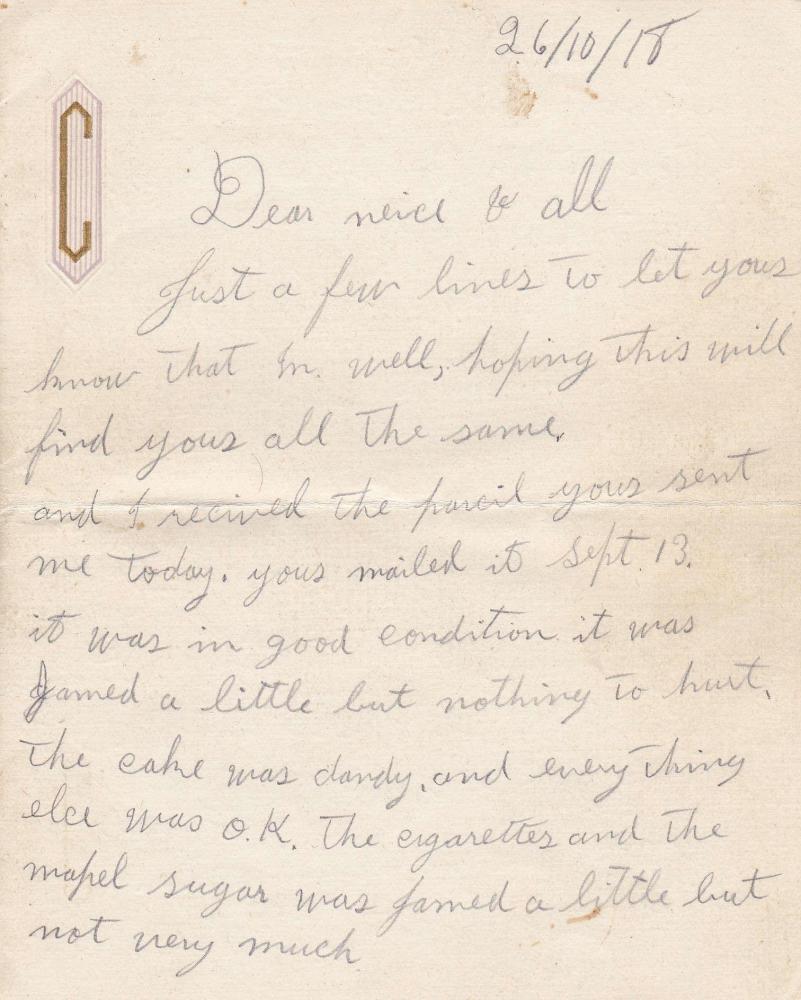 26/10/18
C
Dear neice & all
Just a few lines to let yous
know that Im. well, hoping this will
find yous all the same.
and I recived the parcil yous sent
me today. yous mailed it Sept. 13.
it was in good condition it was
Jamed a little but nothing to hurt.
The cake was dandy, and every thing
else was O.K. The cigarettes and the
mapel sugar was jamed a little but
not very much